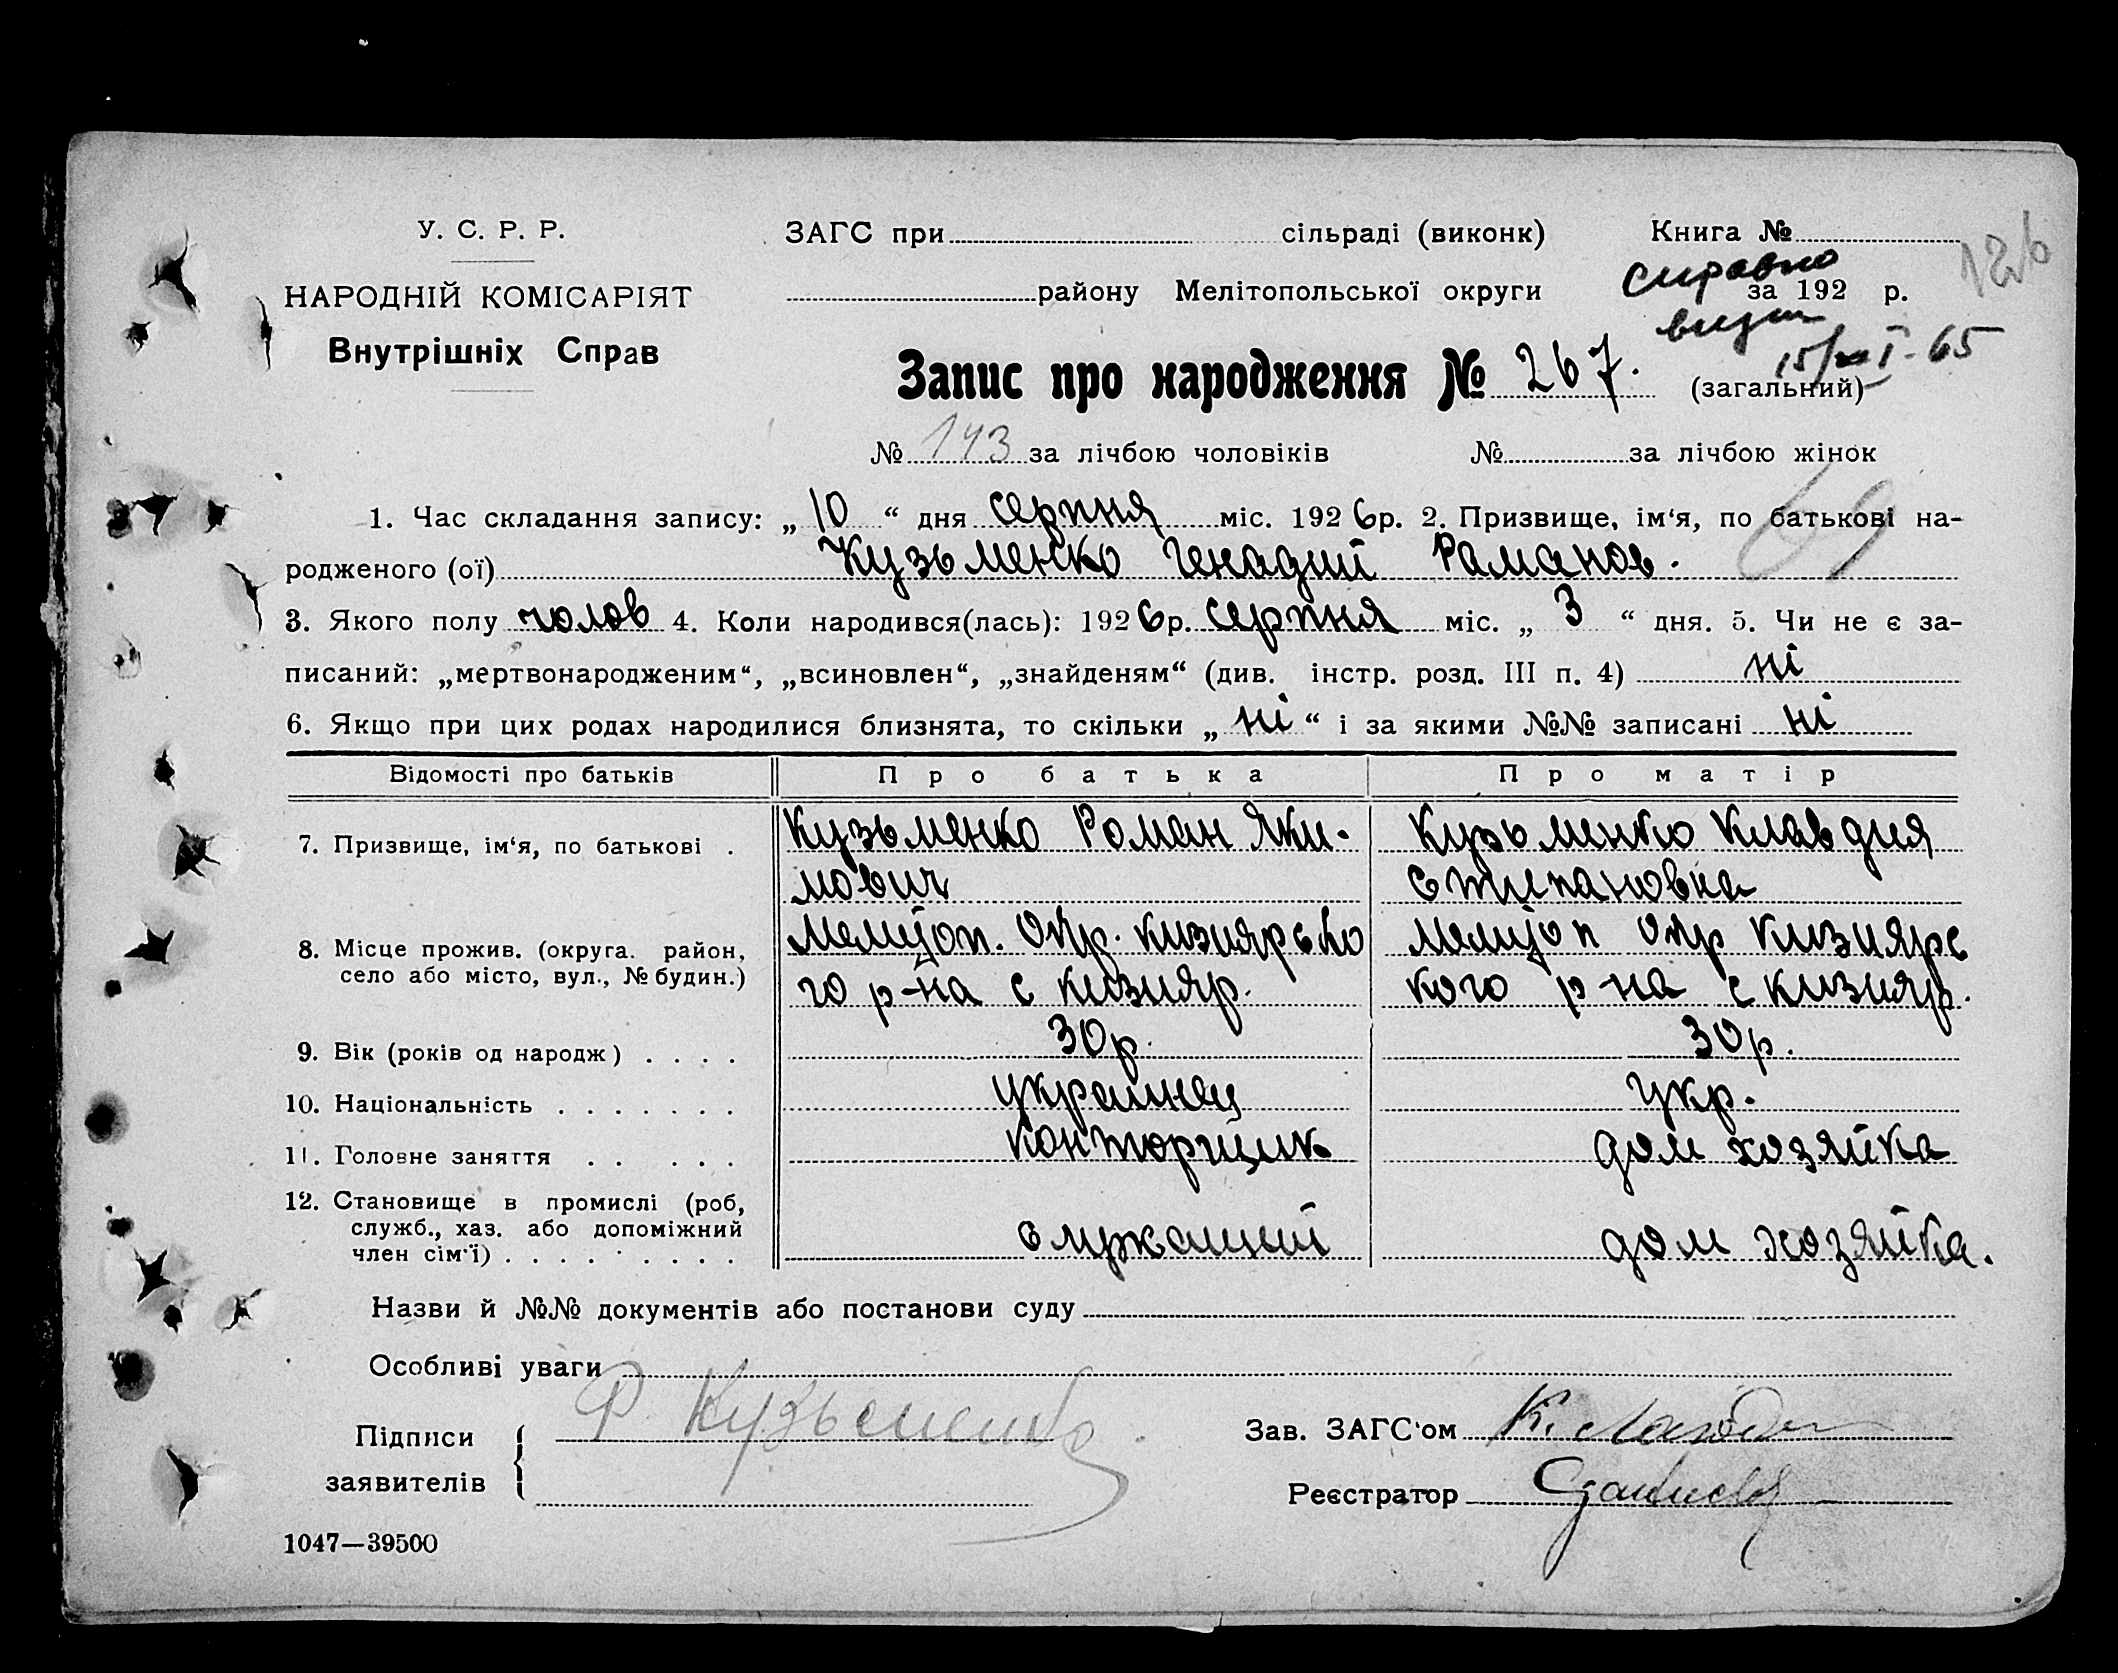 У. С. Р. Р.
НАРОДНІЙ КОМІСАРІЯТ
Внутрішніх Справ
ЗАГС при сільраді (виконк) Книга №
126
району Мелітопольської округи за 192 р.
справка
видан
15/XI-65
Запис про народження № 267. (загальний)
№ 143 за лічбою чоловіків № за лічбою жінок
69
1. Час складання запису: „ 10 “ дня серпня міс. 1926р. 2. Призвище, ім‘я, по батькові на-
родженого (ої) Кузьменко Генадий Раманов.
3. Якого полу чолов 4. Коли народився(лась): 1926р. серпня міс. „ 3 “ дня. 5. Чи не є за-
писаний: „мертвонародженим“, „всиновлен“, „знайденям“ (див. інстр. розд. III п. 4) ні
6. Якщо при цих родах народилися близнята, то скільки „ ні “ і за якими №№ записані ні
Відомості про батьків Про батька Про матір
7. Призвище, ім‘я, по батькові .
Кузьменко Роман Яки-
мович
Кузьменко Клавдия
Степановка
8. Місце прожив. (округа. район,
село або місто, вул., № будин.)
Мелітоп. Окр. Кизиярсько
го р-на с Кизияр.
Мелітоп Окр Кизиярс
кого р-на с Кизияр.
9. Вік (років од народж) . . . . 30р. 30р.
10. Національність . . . . . . . украинец укр.
11. Головне заняття . . . . . конторщик дом хозяйка
12. Становище в промислі (роб,
служб., хаз. або допоміжний
член сім‘ї) . . . . . . . .
служащий дом хозяйка.
Назви й №№ документів або постанови суду
Особливі уваги
Підписи
заявителів
Р Кузьменко
Зав. ЗАГС‘ом К.
Реєстратор
1047—39500